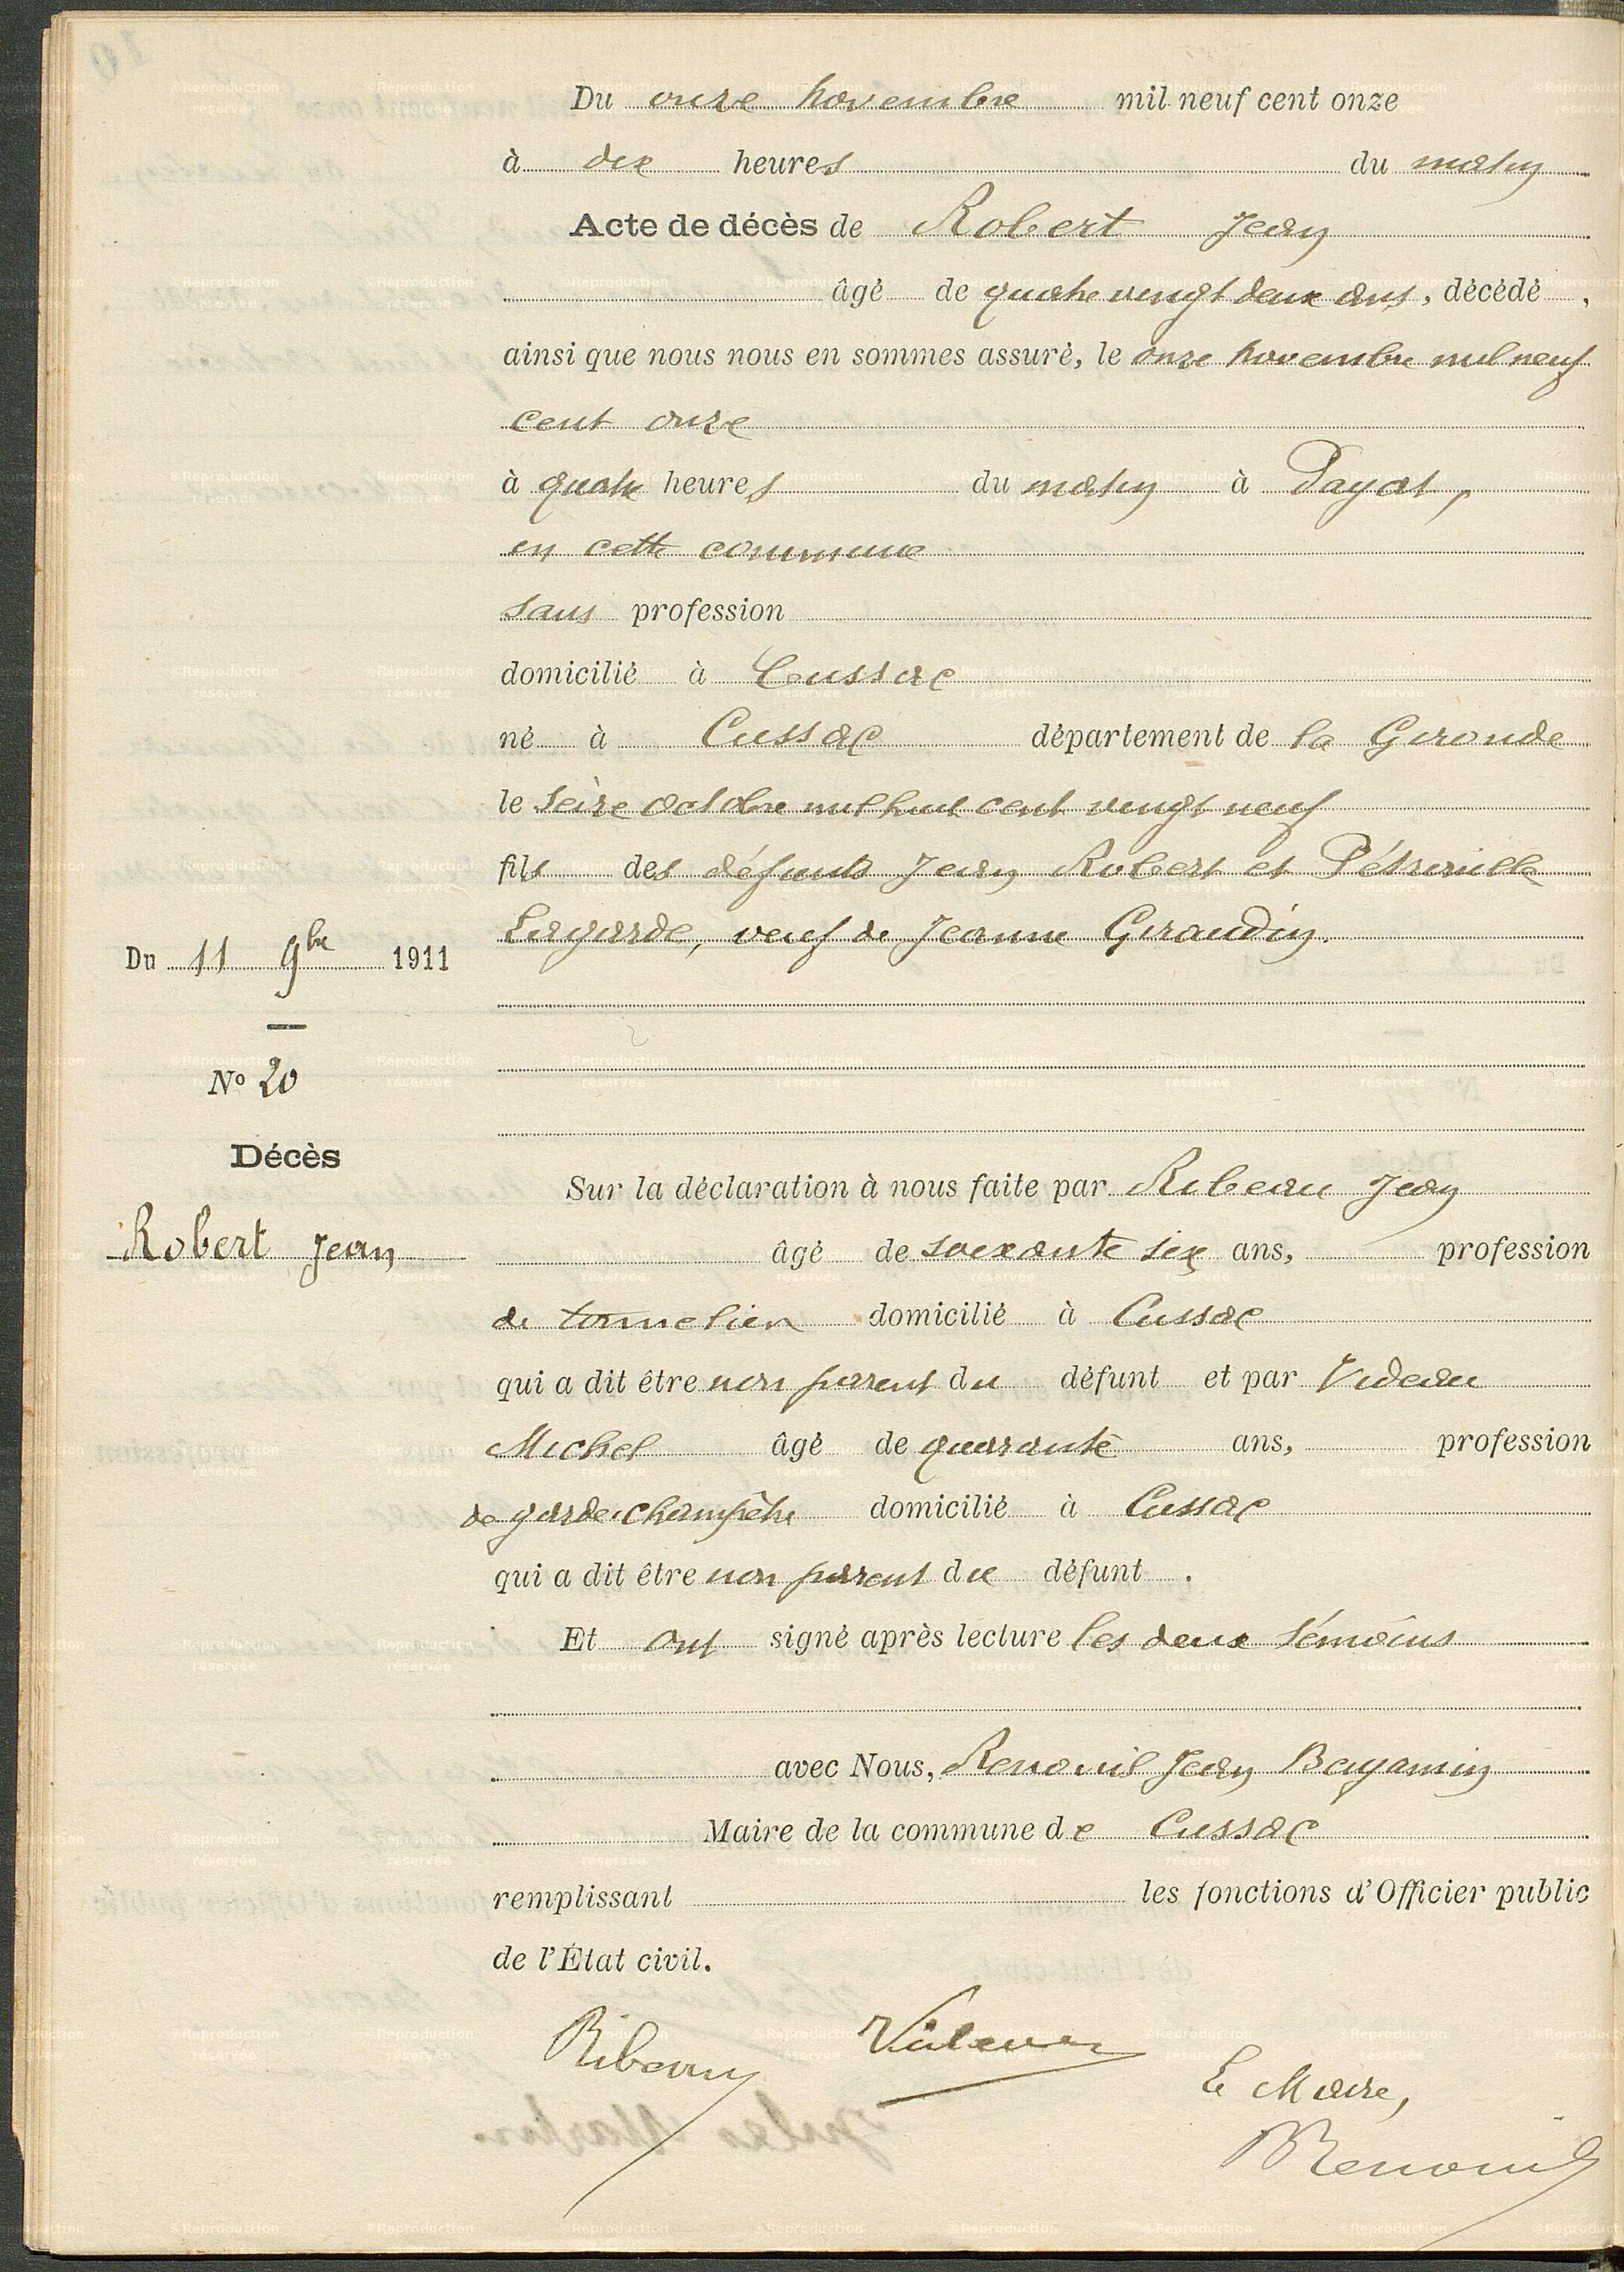 Du onze novembre mil neuf cent onze
à dix heures du matin
Acte de décès de Robert Jean
âgé de quatre vingt deux ans, décédé,
ainsi que nous nous en sommes assuré, le onze novembre mil neuf
cent onze
à quatre heures du matin à Payat,
en cette commune
sans profession
domicilié à Cussac
né à Cussac département de la Gironde
le seize octobre mil huit cent vingt neuf
fils des défunts Jean Robert et Pétronille
Lagarde, veuf de Jeanne Giraudin.
Du 11 9bre 1911
Nº 20
Décès
Robert Jean
Sur la déclaration à nous faite par Ribeau Jean
âgé de soixante six ans, profession
de tonnelier domicilié à Cussac
qui a dit être non parent du défunt et par Videau
Michel âgé de quarante ans, profession
de garde-champêtre domicilié à Cussac
qui a dit être non parent du défunt.
Et ont signé après lecture les deux témoins
avec Nous, Renouil Jean Benjamin
Maire de la commune de Cussac
remplissant les fonctions d'Officier public
de l'État civil.
Ribeau Videau
Le Maire,
BRenouil